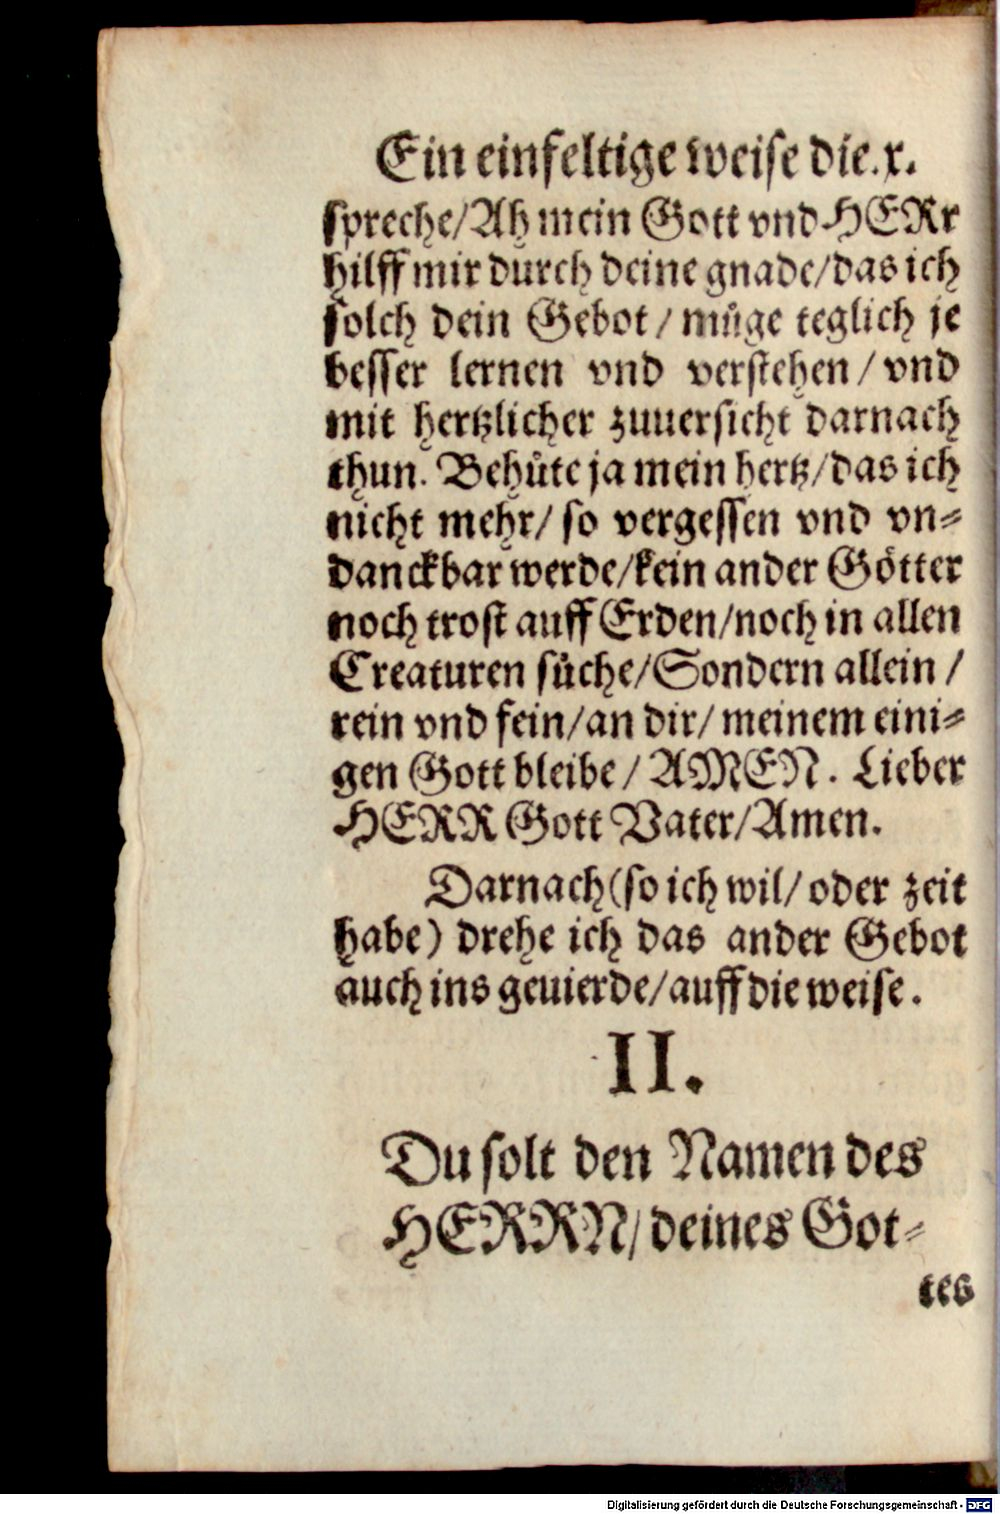 Ein einfeltige weise die.x.
spreche/Ah mein Gott vnd HERr
hilff mir durch deine gnade/das ich
solch dein Gebot / müge teglich je
besser lernen vnd verstehen / vnd
mit hertzlicher zuuersicht darnach
thun. Behüte ja mein hertz/das ich
nicht mehr/ so vergessen vnd vn⸗
danckbar werde/kein ander Götter
noch trost auff Erden/noch in allen
Creaturen süche/Sondern allein /
rein vnd fein/an dir/ meinem eini⸗
gen Gott bleibe / AMEN. Lieber
HERR Gott Vater/Amen.
Darnach(so ich wil/ oder zeit
habe) drehe ich das ander Gebot
auch ins geuierde/auff die weise.
II.
Du solt den Namen des
HERRN/ deines Got⸗
tes
Digitalisierung gefördert durch die Deutsche Forschungsgemeinschaft - DFG